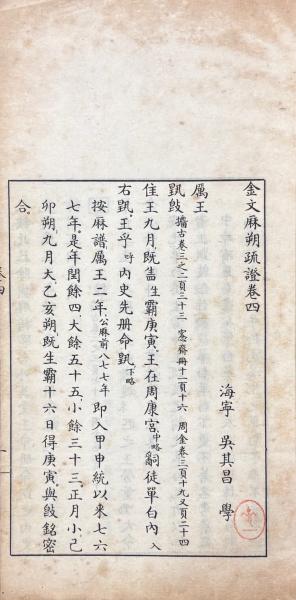 金文厤朔疏證卷四
海寧 吳其昌 學
厲王
𩁹𣪘攟古卷三之二頁三十三 愙齋冊十一頁十六 周金卷三頁十九又頁二十四
隹王九月,既眚生霸庚寅,王在周康宮,中略嗣徒單白內入
右𩁹,王乎呼內史先冊命𩁹,下略
按厤譜,厲王二年,公厤前八七七年即入甲申統以來七六
七年,是年閏餘四大餘五十五,小餘三十三,正月小,己
卯朔,九月大乙亥朔,既生霸十六日得庚寅,與𣪘銘密
合。